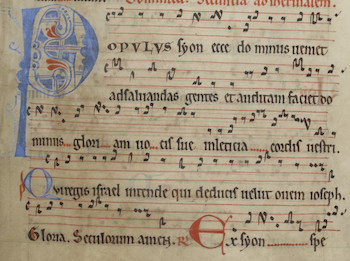 Dominica. Secunda
POPULUS syon ecce dominus veniet
ad salvandas gentes et auditam faciet do
minus glori am vo cis sue in leticia cordis vestri.
Qui regis israel intende qui deducis velut ovem ioseph.
Gloria. Seculorum amen. Ex syon spe